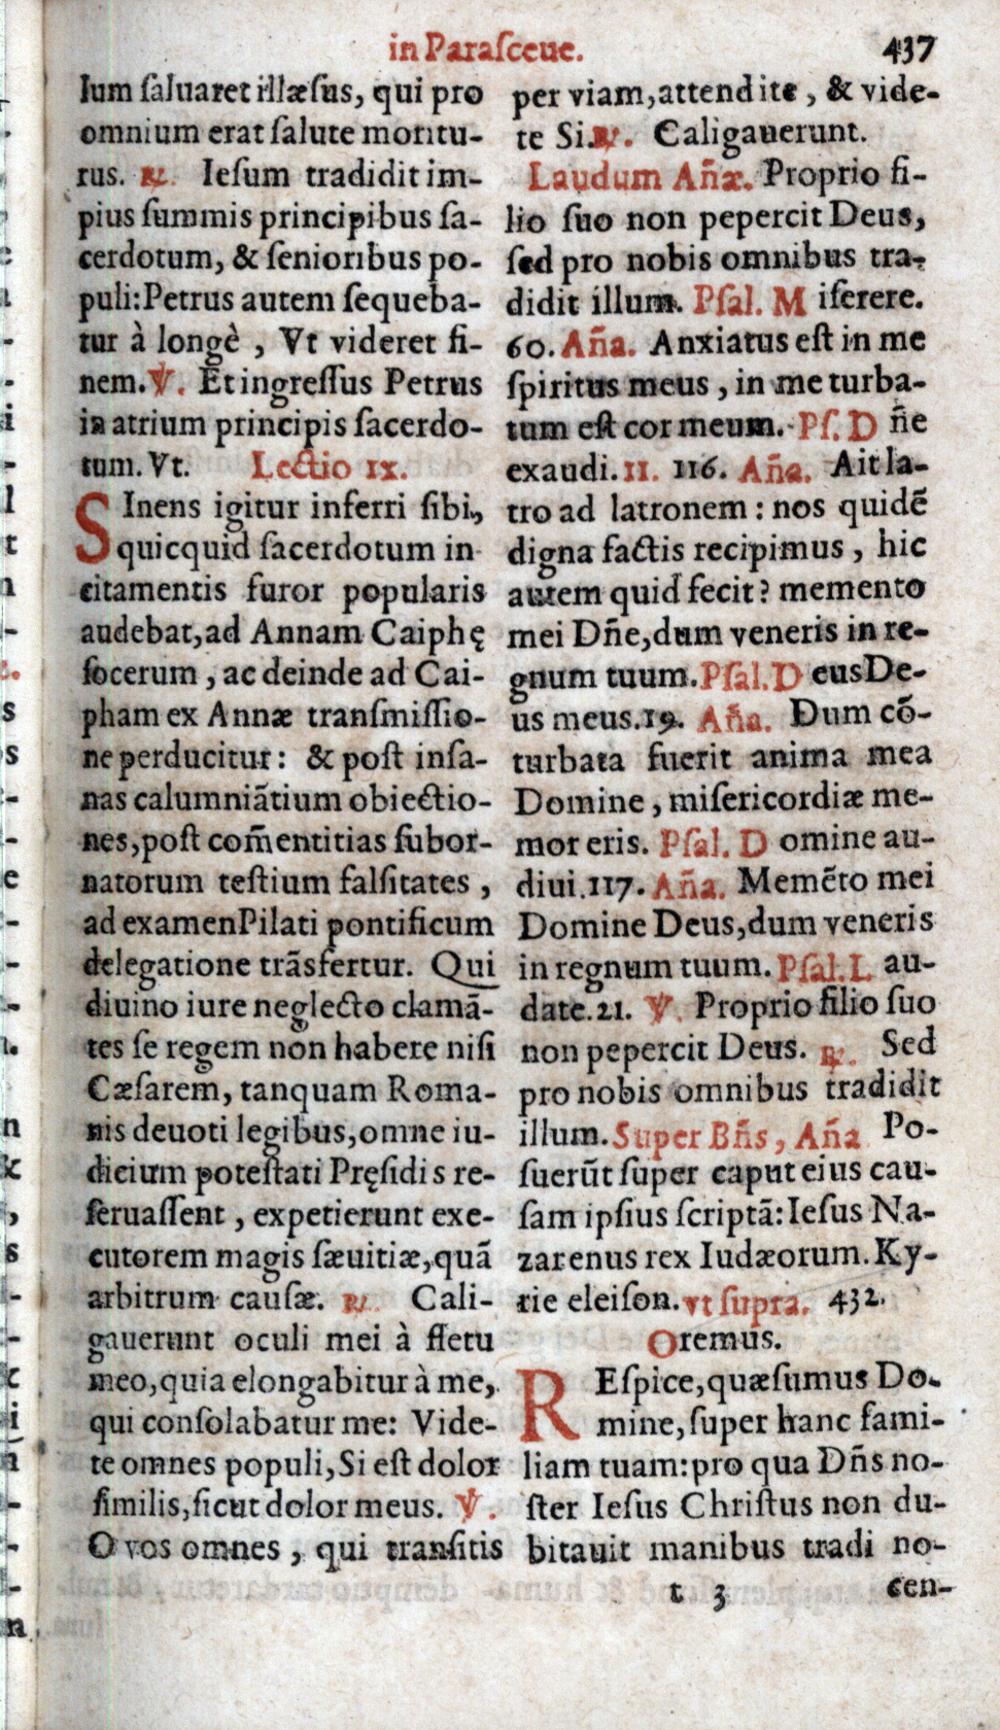 in Paraſceue. 437
lum ſaluaret illæſus, qui pro
omnium erat ſalute moritu-
rus. ℟. Ieſum tradidit im-
pius ſummis principibus ſa-
cerdotum, & ſenioribus po-
puli:Petrus autem ſequeba-
tur à longè , Vt videret fi-
nem.℣. Et ingreſſus Petrus
in atrium principis ſacerdo-
tum. Vt. Lectio IX.
SInens igitur inferri ſibi,
quicquid ſacerdotum in
citamentis furor popularis
audebat,ad Annam Caiphę
ſocerum , ac deinde ad Cai-
pham ex Annæ tranſmiſſio-
ne perducitur: & poſt inſa-
nas calumniãtium obiectio-
nes,poſt com̃entitias ſubor-
natorum teſtium falſitates ,
ad examen Pilati pontificum
delegatione trãsfertur. Qui
diuino iure neglecto clamã-
tes ſe regem non habere niſi
Cæſarem, tanquam Roma-
nis deuoti legibus,omne iu-
dicium poteſtati Pręſidis re-
ſeruaſſent , expetierunt exe-
cutorem magis ſæuitiæ,quã
arbitrum cauſæ. ℟. Cali-
gauerunt oculi mei à fletu
meo,quia elongabitur à me,
qui conſolabatur me: Vide-
te omnes populi,Si eſt dolor
ſimilis,ſicut dolor meus. ℣.
O vos omnes , qui tranſitis
per viam,attendite , & vide-
te Si.℟. Caligauerunt.
Laudum Añæ. Proprio fi-
lio ſuo non pepercit Deus,
ſed pro nobis omnibus tra-
didit illum. Pſal. M iſerere.
60. Aña. Anxiatus eſt in me
ſpiritus meus , in me turba-
tum eſt cor meum. Pſ. D ñe
exaudi. 11. 116. Aña. Ait la-
tro ad latronem : nos quidẽ
digna factis recipimus , hic
autem quid fecit? memento
mei Dñe,dum veneris in re-
gnum tuum.Pſal. D eus De-
us meus.19. Aña. Dum cõ-
turbata fuerit anima mea
Domine , miſericordiæ me-
mor eris. Pſal. D omine au-
diui.117. Aña. Memẽto mei
Domine Deus,dum veneris
in regnum tuum. Pſal. L au-
date.21. ℣. Proprio filio ſuo
non pepercit Deus. ℟. Sed
pro nobis omnibus tradidit
illum. Super Bñs, Aña Po-
ſuerũt ſuper caput eius cau-
ſam ipſius ſcriptã: Ieſus Na-
zarenus rex Iudæorum. Ky-
rie eleiſon. vt ſupra. 432.
Oremus.
REſpice,quæſumus Do-
mine,ſuper hanc fami-
liam tuam:pro qua Dñs no-
ſter Ieſus Chriſtus non du-
bitauit manibus tradi no-
t 3 cen-